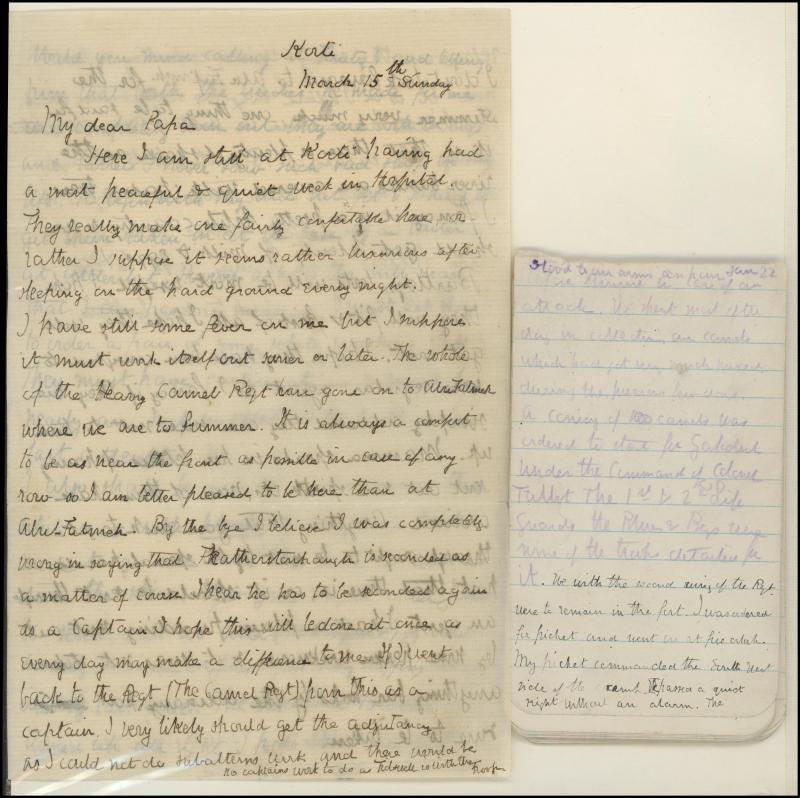 Korti
March 15th Sunday
My dear Papa
Here I am still at Korti having had
a most peaceful & quiet week in Hospital.
They really make one fairly comfortable here or
rather I suppose it seems rather luxurious after
sleeping on the hard ground every night.
I have still some fever on me but I suppose
it must work itself out sooner or later. The whole
of the Heavy Camel Regt have gone on to Abu Fatmeh
where we are to Summer. It is always a comfort
to be as near the front as possible in case of any
row so I am better pleased to be here than at
Abu-Fatmeh. By the bye I believe I was completely
wrong in saying that Featherstonhaugh is seconded as
a matter of course I hear he has to be seconded again
as a Captain I hope this will be done at once as
every day may make a difference to me. If I went
back to the Regt (The Camel Regt) from this as a
captain, I very likely should get the adjutancy
as I could not do subalterns work and there would be
no captains work to do as is with the
Stood to our arms Jan 22
in case of an
attack. We spent most of the
day in collecting our camels
which had got very much mixed
during the previous few days.
A convoy of camels was
ordered to start for Gakdul
under the Command of Colonel
Talbot The 1st & 2nd Life
Guards the Blues & Bays were
some of the troops detailed for
it. We with the second wing of the Regt.
were to remain in the fort. I was ordered
for picket and went on at five o'clock.
My picket commanded the South West
side of the camp. It passed a quiet
night without an alarm. The